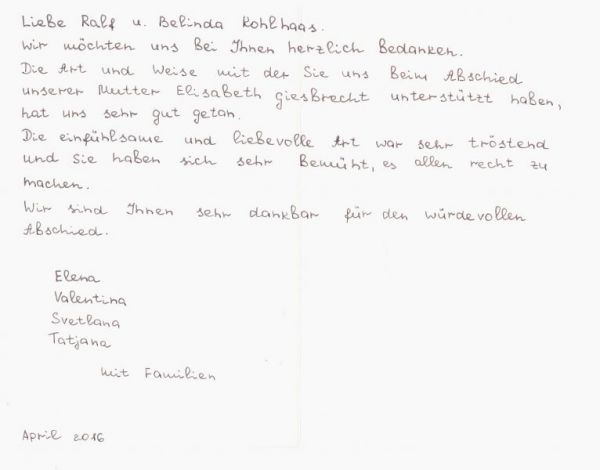 Liebe Ralf u. Belinda Kohlhaas.
Wir möchten uns Bei Ihnen herzlich Bedanken.
Die Art und Weise mit der Sie uns Beim Abschied
unserer Mutter Elisabeth Giesbrecht unterstützt haben,
hat uns sehr gut getan.
Die einfühlsame und liebevolle Art war sehr tröstend
und Sie haben sich sehr Bemüht, es allen recht zu
machen.
Wir sind Ihnen sehr dankbar für den würdevollen
Abschied.
Elena
Valentina
Svetlana
Tatjana
mit Familien
April 2016